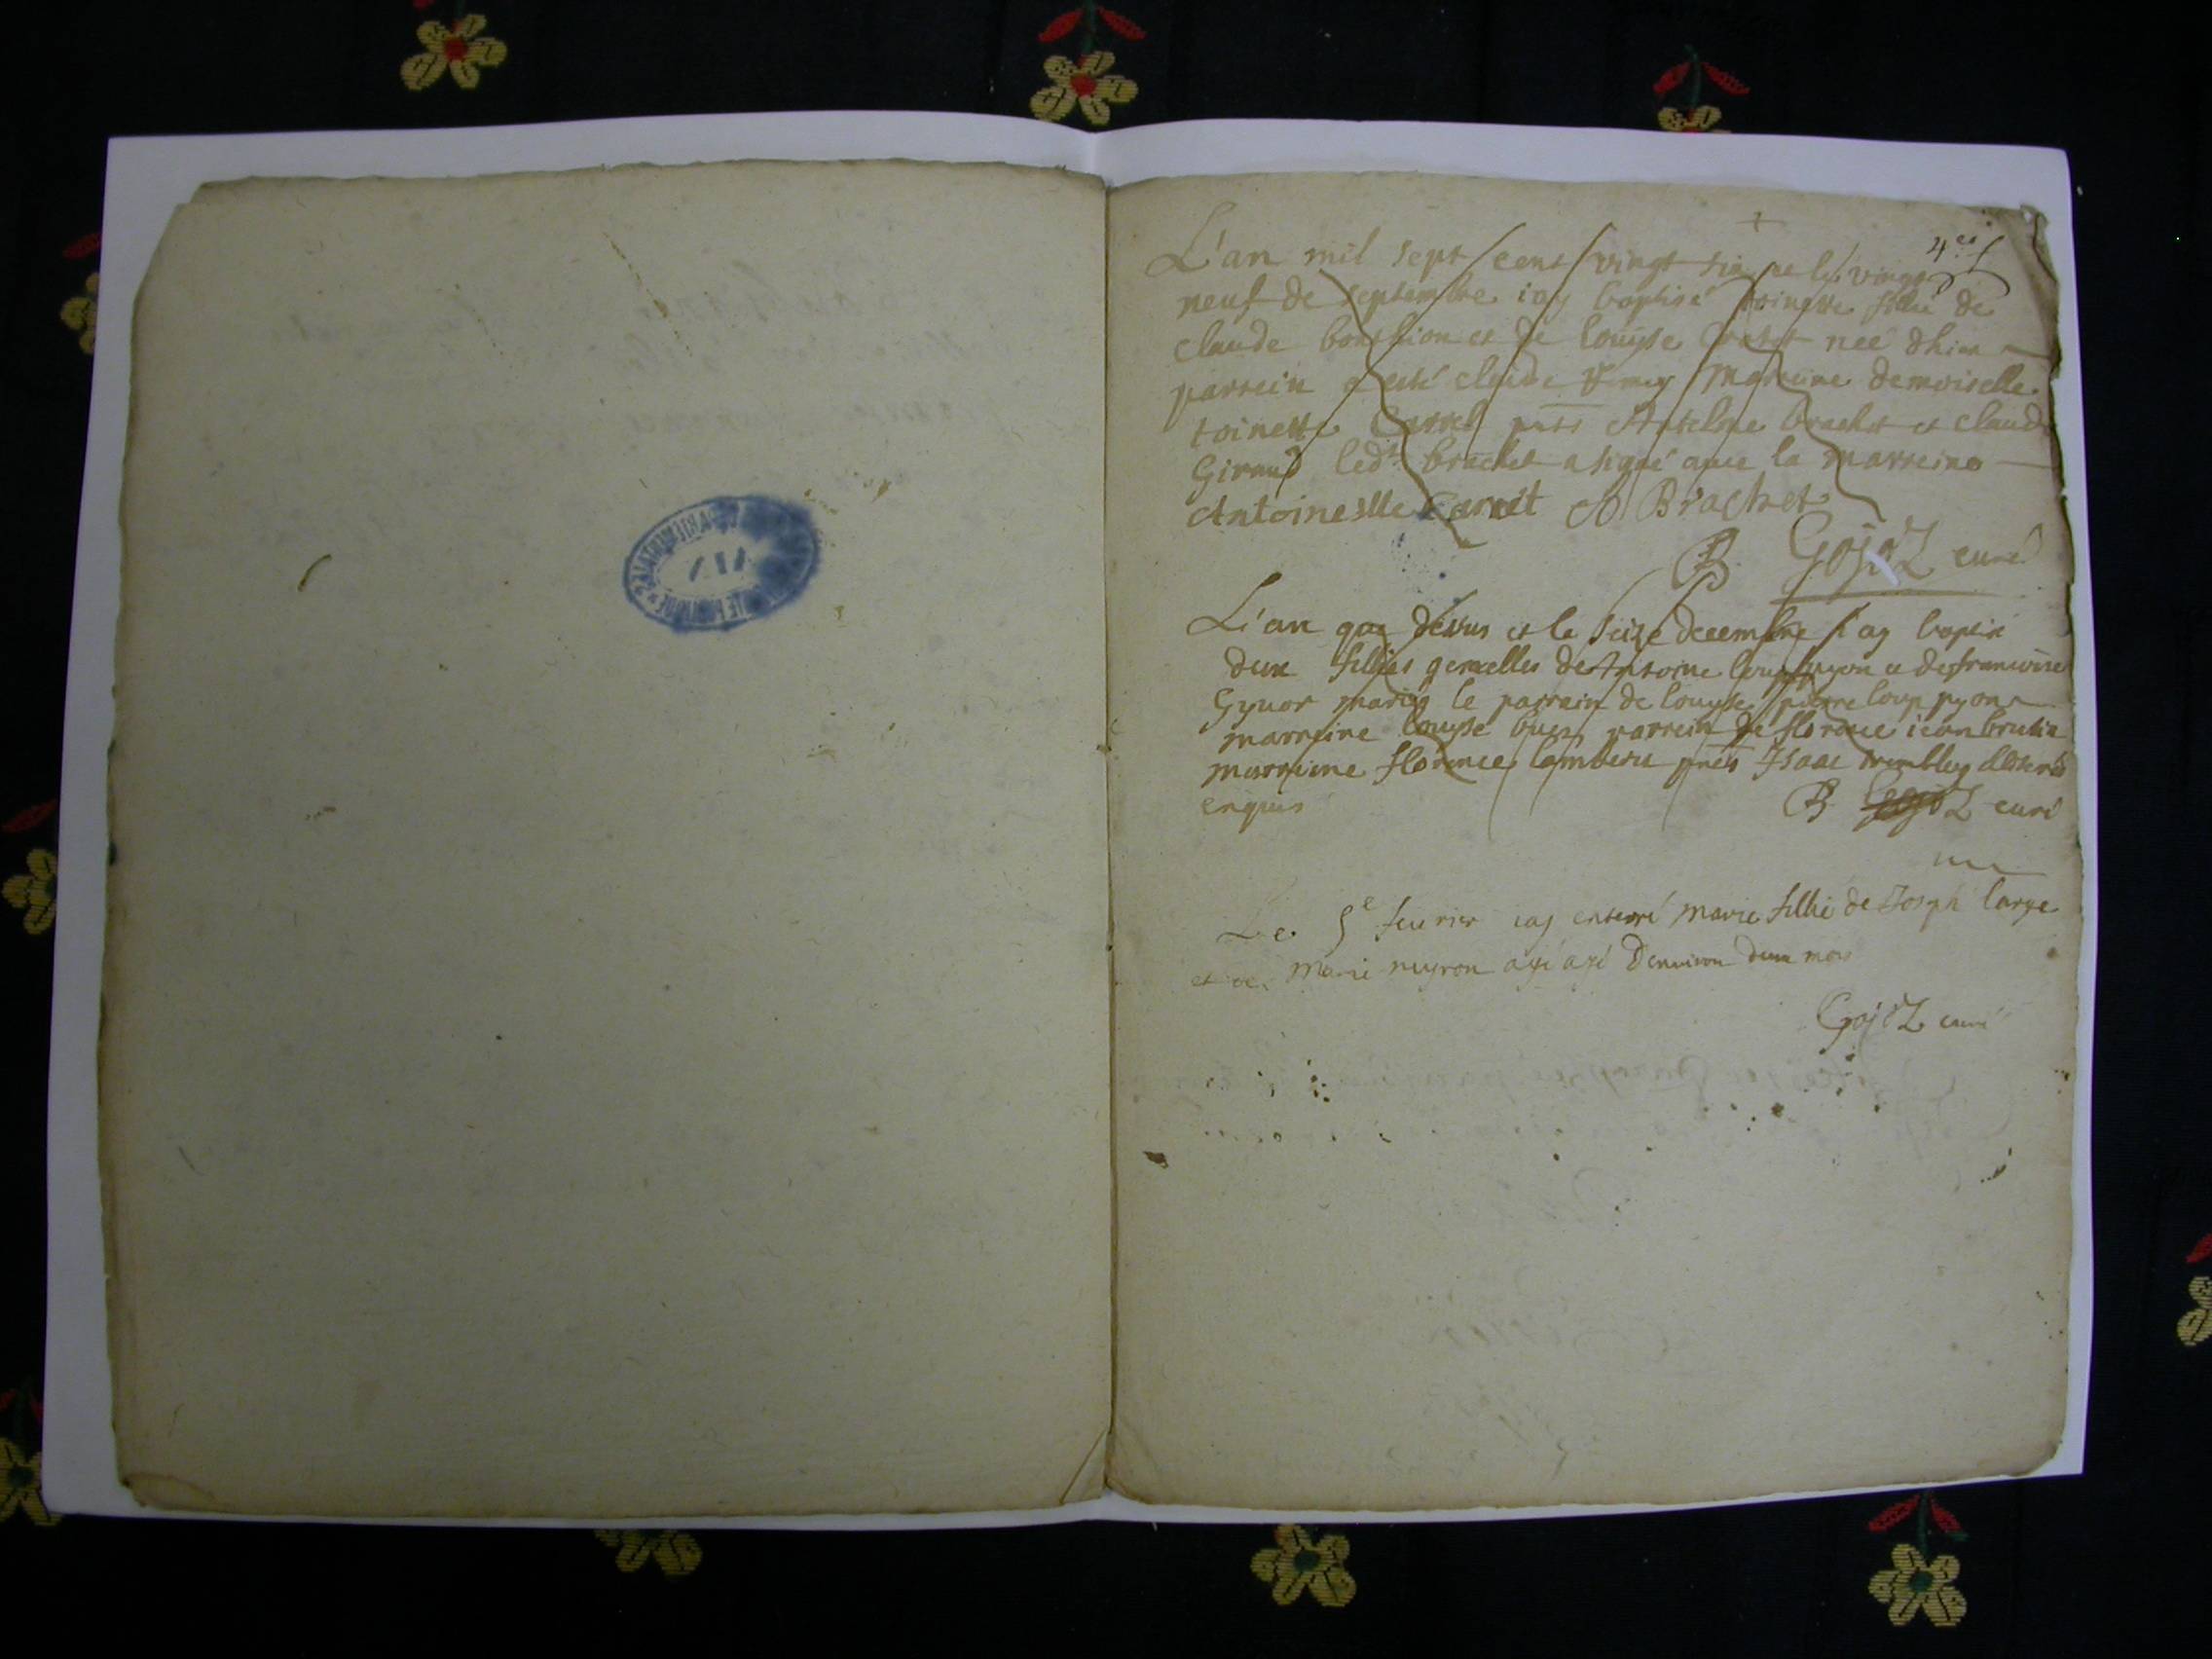 4es
L'an mil sept cent vingt et le vingt
neuf de septembre iay baptisé toinette fillie de
claude et de louyse née dhier
parrein a esté claude marreine demoiselle
toinette pnts Anselme brachet et claude
Giraud ledt brachet a signé avec la marreine
Antoinette A Brachet
B. Gojoz curé
L'an que dessus et le seize decembre iay baptisé
deux fillies gemelles de Antoine loup pyon et de francoise
Gynor mariés le parrain de louyse pierre loup pyon
marreine louyse parrein de florence iean
marreine florence lambert pnts Isaac trembley illiterés
enquis
B. Gojoz curé
Le 5e feurier iay enterré marie fillie de Joseph large
et de Marie neyron agé agé denuiron dun mois
Gojoz curé